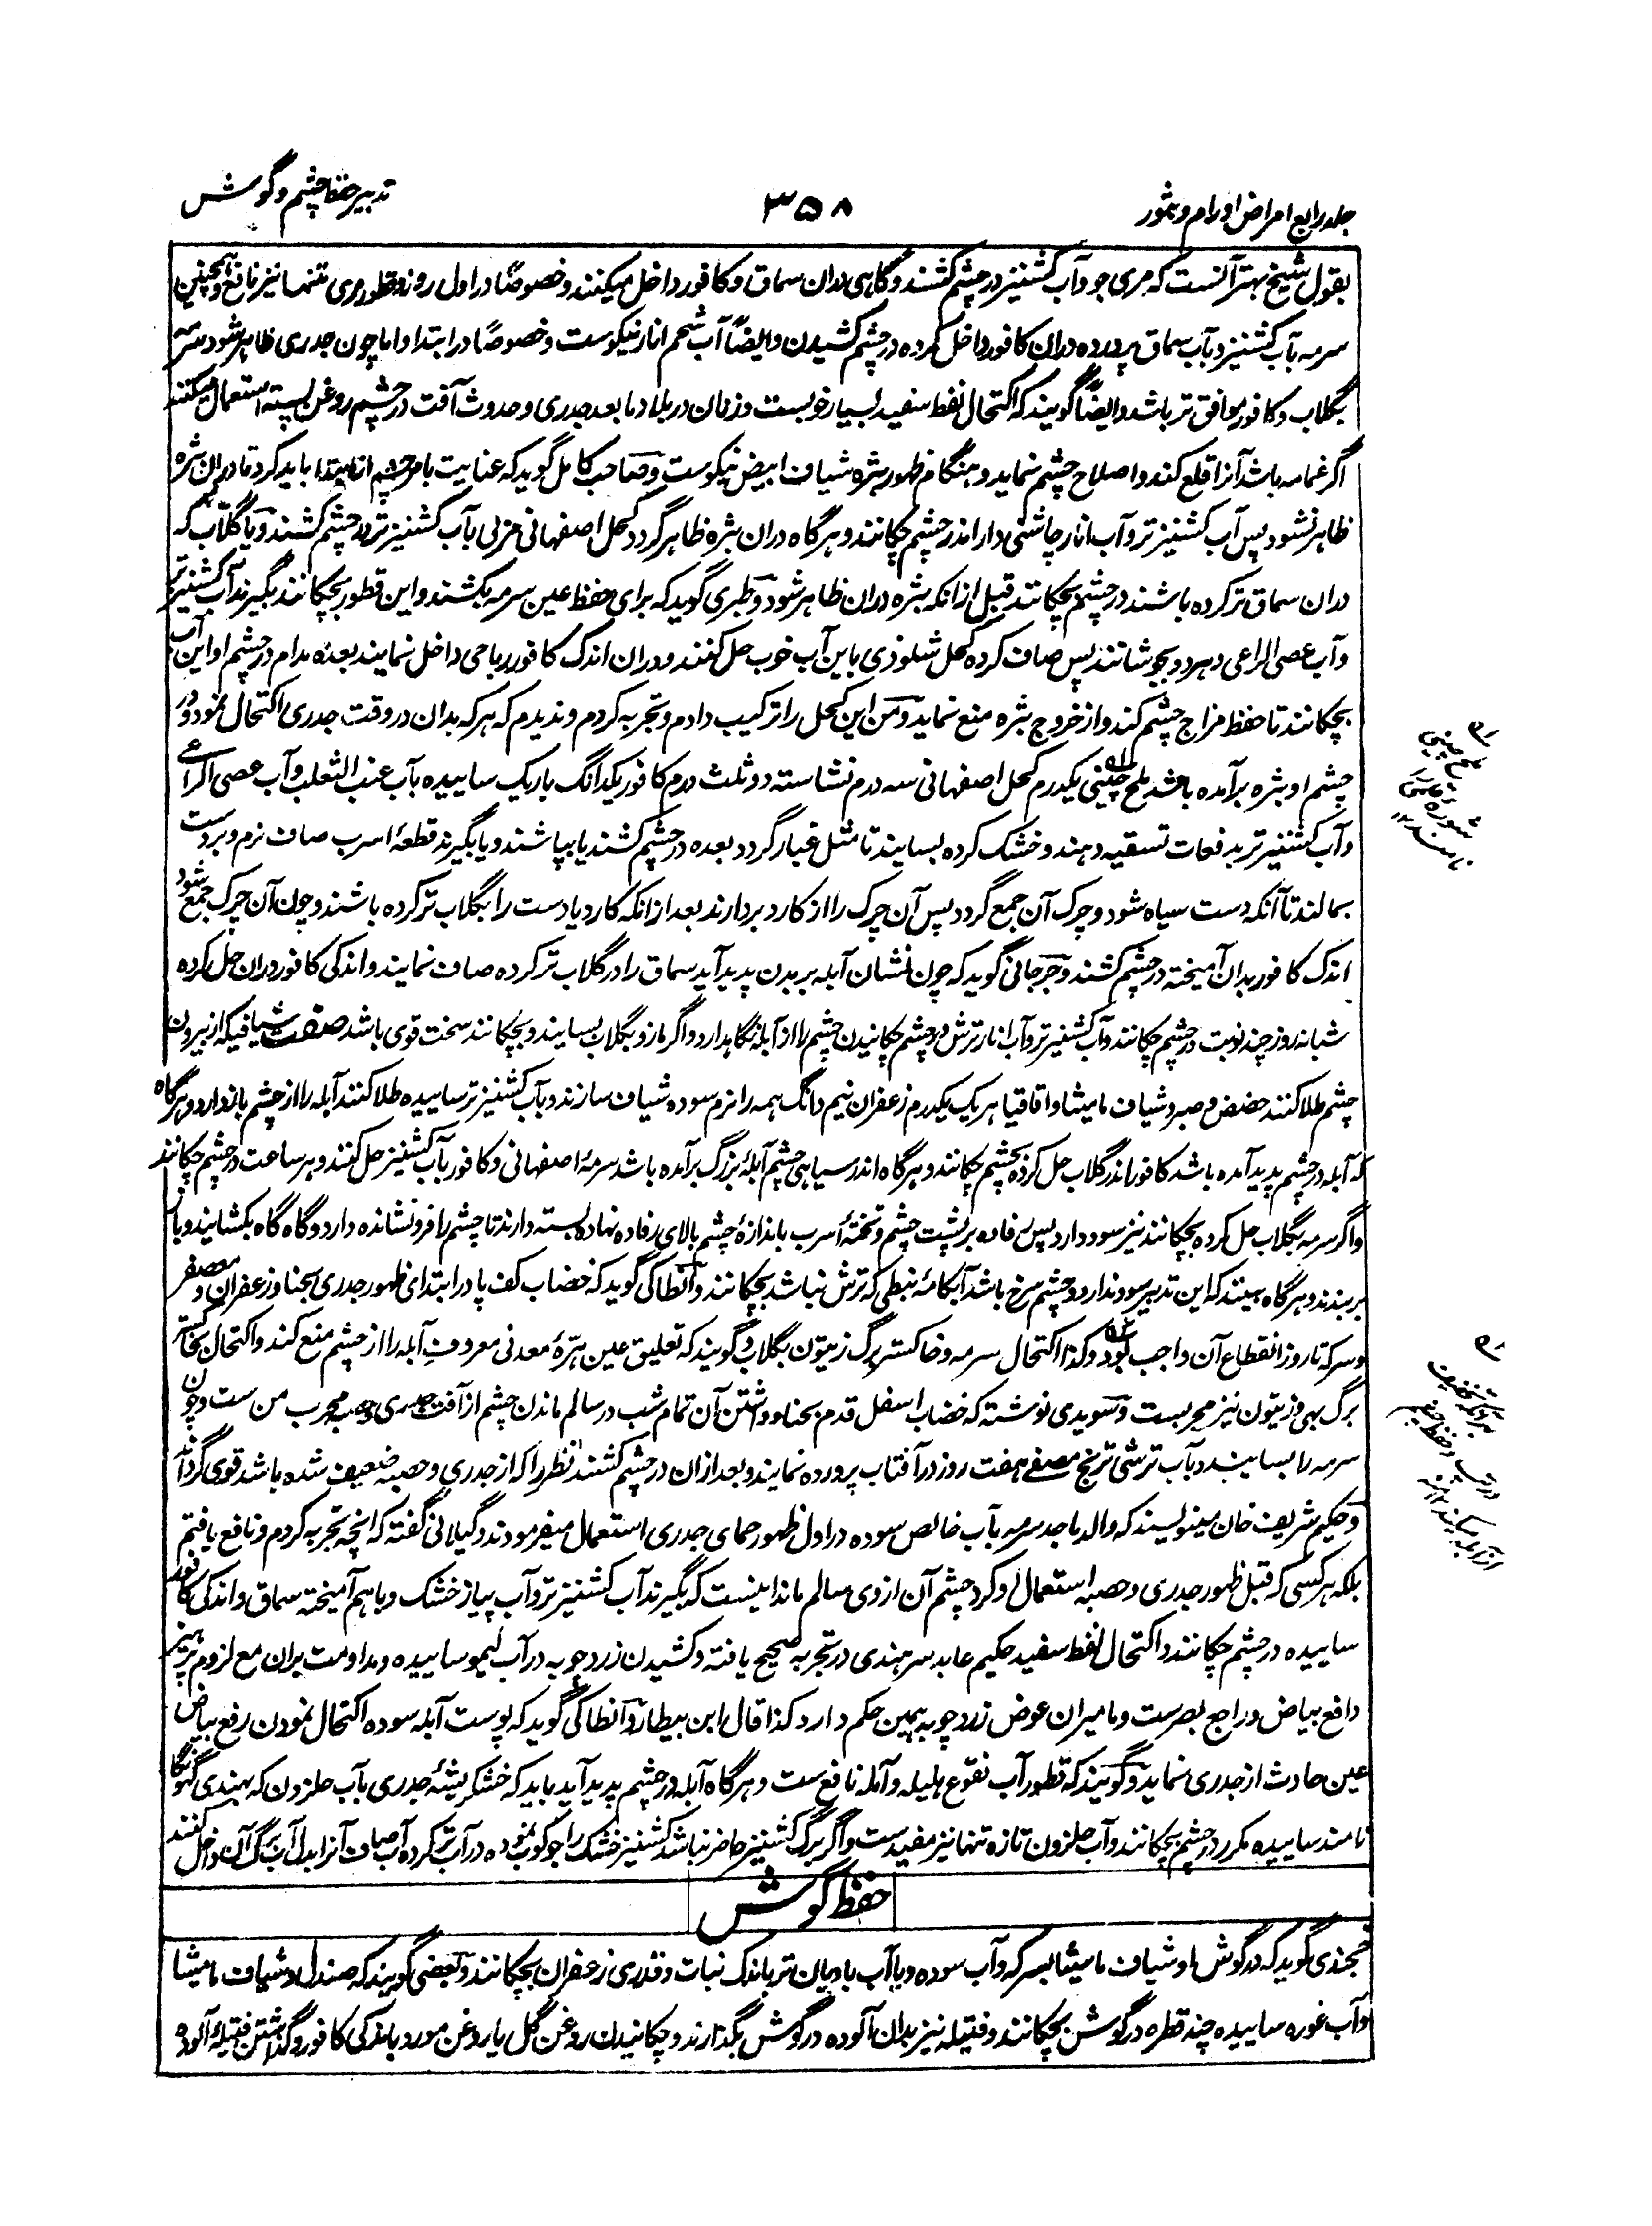 جلد رابع امراض اورام و بثور
۳۵۸
تدبیر حفظ چشم و گوش
بقول شیخ بهتر آنست که مری جو و آب کشنیز در چشم کشند و گاهی دران سماق و کافور داخل میکنند و خصوصًا در اول روز و قطور مری تنها نیز نافع و همچنین
سرمه بآب کشنیز و بآب سماق پرورده دران کافور داخل کرده در چشم کشیدن و ایضًا آب شحم انار نیکوست و خصوصًا در ابتدا و اما چون جدری ظاهر شود سرمه
بگلاب و کافور موافق تر باشد و ایضًا گویند که اکتحال نفط سفید بسیار خوبست و زنان در بلاد ما بعد جدری و حدوث آفت در چشم روغن پسته استعمال میکنند
اگر غمامه باشد آنرا قلع کند و اصلاح چشم نماید و هنگام ظهور بثره شیاف ابیض نیکوست و صاحب کامل گوید که عنایت بامر چشم از ابتدا باید کرد تا دران بثره
ظاهر نشود پس آب کشنیز تر و آب انار چاشنی دار اندر چشم چکانند و هرگاه دران بثره ظاهر گردد کحل اصفهانی مربی بآب کشنیز تر در چشم کشند و یا گلاب که
دران سماق تر کرده باشند در چشم بچکانند قبل ازانکه بثره دران ظاهر شود و طبری گوید که برای حفظ عین سرمه بکشند و این قطور بچکانند بگیرند آب کشنیز تر
و آب عصی الراعی و هر دو بجوشانند پس صاف کرده کحل شلوذی باین آب خوب حل کنند و دران اندک کافور رباحی داخل نمایند بعده مدام در چشم او این آب
بچکانند تا حفظ مزاج چشم کند و از خروج بثره منع نماید و من این کحل را ترکیب دادم و تجربه کردم و ندیدم که هر که بدان در وقت جدری اکتحال نمود و در
چشم او بثره برآمده باشد ملح چینی یکدرم کحل اصفهانی سه درم نشاسته دو ثلث درم کافور یکدانگ باریک ساییده بآب عنب الثعلب و آب عصی الراعی
و آب کشنیز تر بدفعات تسقیه دهند و خشک کرده بسایند تا مثل غبار گردد بعده در چشم کشند یا بپاشند و یا بگیرند قطعهٔ اسرب صاف نرم و بر دست
بمالند تا آنکه دست سیاه شود و چرک آن جمع گردد پس آن چرک را از کارد بردارند بعد ازانکه کارد یا دست را بگلاب تر کرده باشند و چون آن چرک جمع شود
اندک کافور بدان آمیخته در چشم کشند و جرجانی گوید که چون نشان آبله بر بدن پدید آید سماق را در گلاب تر کرده صاف نمایند و اندکی کافور دران حل کرده
شبانه روز چند نوبت در چشم چکانند و آب کشنیز تر و آب انار ترش در چشم چکانیدن چشم را از آبله نگاهدارد و اگر مازو بگلاب بسایند و بچکانند سخت قوی باشد صفت شیافیکه از بیرون
چشم طلا کنند حضض و صبر و شیاف مامیثا و اقاقیا هر یک یکدرم زعفران نیم دانگ همه را نرم سوده شیاف سازند و بآب کشنیز تر ساییده طلا کنند آبله را از چشم باز دارد و هرگاه
که آبله در چشم پدید آمده باشد کافور اندر گلاب حل کرده بچشم چکانند و هرگاه اندر سیاهی چشم آبلهٔ بزرگ برآمده باشد سرمهٔ اصفهانی و کافور بآب کشنیز حل کنند و هر ساعت در چشم چکانند
و اگر سرمه بگلاب حل کرده بچکانند نیز سود دارد پس رفاده بر پشت چشم و تختهٔ اسرب باندازهٔ چشم بالای رفاده نهاده بسته دارند تا چشم را فرو نشانده دارد و گاه گاه بکشایند و باز
بربندند و هرگاه بینند که این تدبیر سود ندارد و چشم سرخ باشد آبکامهٔ نبطی که ترش نباشد بچکانند و انطاکی گوید که خضاب کف پا در ابتدای ظهور جدری بحنا و زعفران و معصفر
و سرکه تا روز انقطاع آن واجب بود و کذا اکتحال سرمه و خاکستر برگ زیتون بگلاب و گویند که تعلیق عین هرّهٔ معدنی معروف آبله را از چشم منع کند و اکتحال خاکستر
برگ بهی و زیتون نیز مجربست و سویدی نوشته که خضاب اسفل قدم بحنا و داشتن آن تمام شب در سالم ماندن چشم از آفت جدری و حصبه مجرب من ست و چون
سرمه را بسایند و بآب ترشی ترنج مصفی هفت روز در آفتاب پرورده نمایند و بعد ازان در چشم کشند نظر را که از جدری و حصبه ضعیف شده باشد قوی گرداند
و حکیم شریف خان مینویسند که والد ماجد سرمه بآب خالص سوده در اول ظهور حمای جدری استعمال میفرمودند و گیلانی گفته که انچه تجربه کردم و نافع یافتم
بلکه هر کسی که قبل ظهور جدری و حصبه استعمال او کرد چشم آن ازوی سالم ماند اینست که بگیرند آب کشنیز تر و آب پیاز خشک و باهم آمیخته سماق و اندکی کافور
ساییده در چشم چکانند و اکتحال نفط سفید حکیم عابد سرهندی در تجربه صحیح یافته و کشیدن زرد چوبه در آب لیمو ساییده و مداومت بران مع لزوم پرهیز
دافع بیاض و راجع بصرست و مامیران عوض زرد چوبه همین حکم دارد کذا قال ابن بیطار و انطاکی گوید که پوست آبله سوده اکتحال نمودن رفع بیاض
عین حادث از جدری نماید و گویند که قطور آب نقوع هلیله و آمله نافع ست و هرگاه آبله در چشم پدید آید باید که خشکریشهٔ جدری بآب حلزون که بهندی گهونگا
نامند ساییده مکرر در چشم بچکانند و آب حلزون تازه تنها نیز مفیدست و اگر برگ کشنیز حاضر نباشد کشنیز خشک را جوکوب نموده در آب تر کرده آب صاف آنرا بدل آب برگ آن داخل کنند
حفظ گوش
خجندی گوید که در گوش او شیاف مامیثا بسرکه و آب سوده و یا آب بادیان تر باندک نبات و قدری زعفران بچکانند و بعضی گویند که صندل و شیاف مامیثا
و آب غوره ساییده چند قطره در گوش بچکانند و فتیله نیز بدان آلوده در گوش بگذارند و چکانیدن روغن گل یا روغن مورد باندکی کافور و گذاشتن فتیله آلوده
ملح چینی
شوره
نامند ۱۲